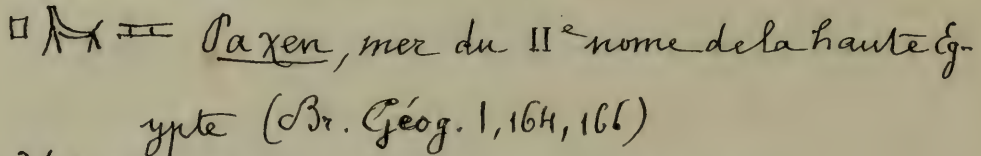 Paχen, mer du IIe nome de la haute Ég-
ypte (Br. Géog. I, 164, 166)